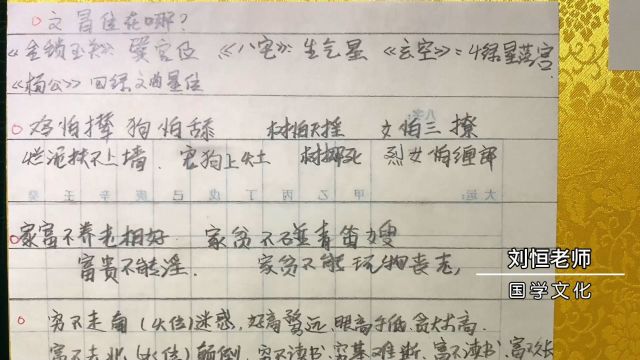 文昌位在哪?
《金锁玉关》 巽宫位 《八宅》: 生气星 《玄空》= 4绿星落宫.
《杨公》 四绿文曲星位
鸡怕捧 狗怕舔 树怕天摇 女怕三撩
烂泥扶不上墙. 宠狗上灶 树挪死 烈女怕缠郎
大运: 甲 乙 丙 丁 戊 己 庚 辛 壬 癸
家富不养老相好 家贫不碰青苗嫂
富贵不能淫. 家贫不能玩物丧志,
刘恒老师
国学文化
穷不走南 (火位) 迷惑, 好高骛远, 眼高手低, 贪大求高.
富不走北 (水位) 颠倒. 穷不读书, 穷基难断, 富不读书, 富不长